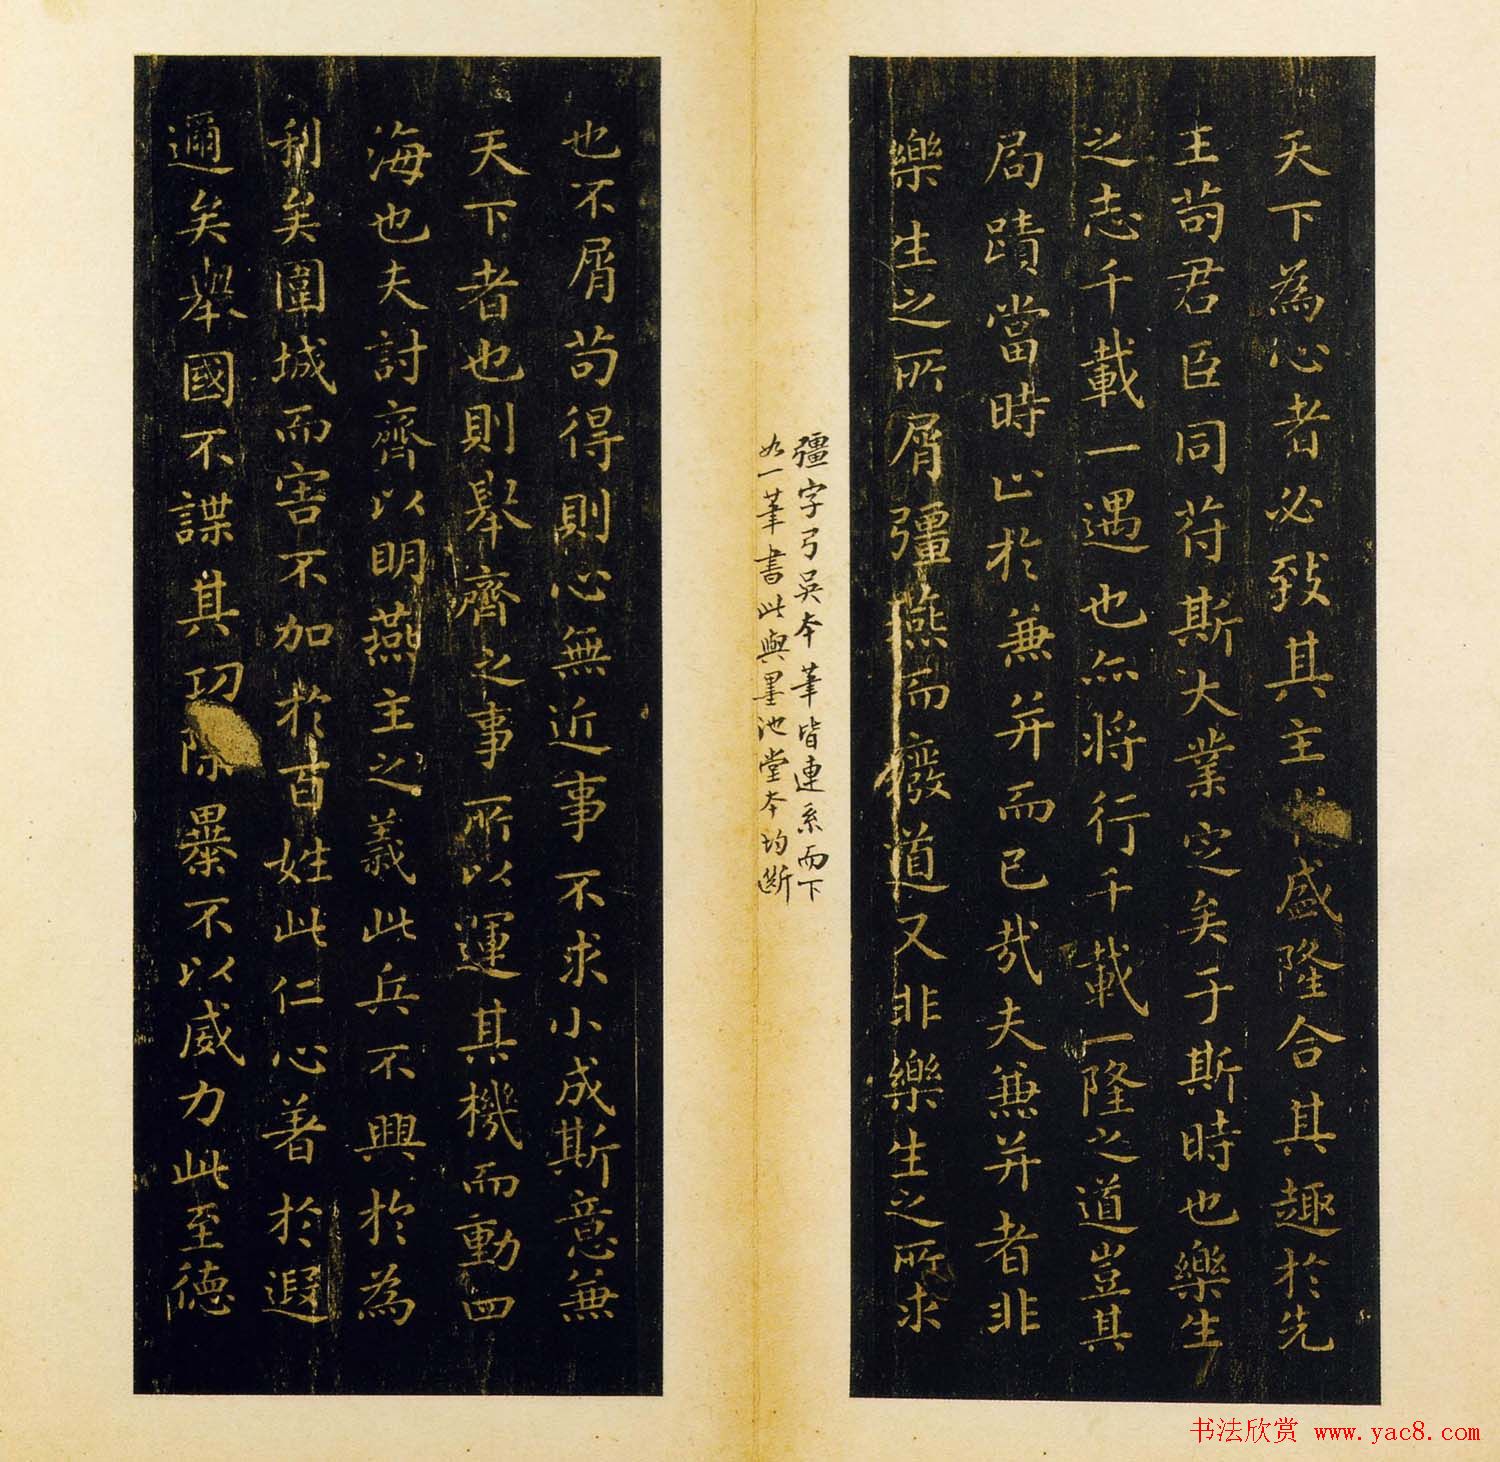 天下為心者必致其主於盛隆合其趣於先
王苟君臣同符斯大業定矣于斯時也樂生
之志千載一遇也亦將行千載一隆之道豈其
局蹟當時止於兼并而已哉夫兼并者非
樂生之所屑彊燕而廢道又非樂生之所求
彊字弓吳本筆皆連系而下
如一筆書此與墨池堂本均斷
也不屑苟得則心無近事不求小成斯意兼
天下者也則舉齊之事所以運其機而動四
海也夫討齊以明燕主之義此兵不興於為
利矣圍城而害不加於百姓此仁心著於遐
邇矣舉國不謀其功除暴不以威力此至德
书法欣赏 www.yac8.com